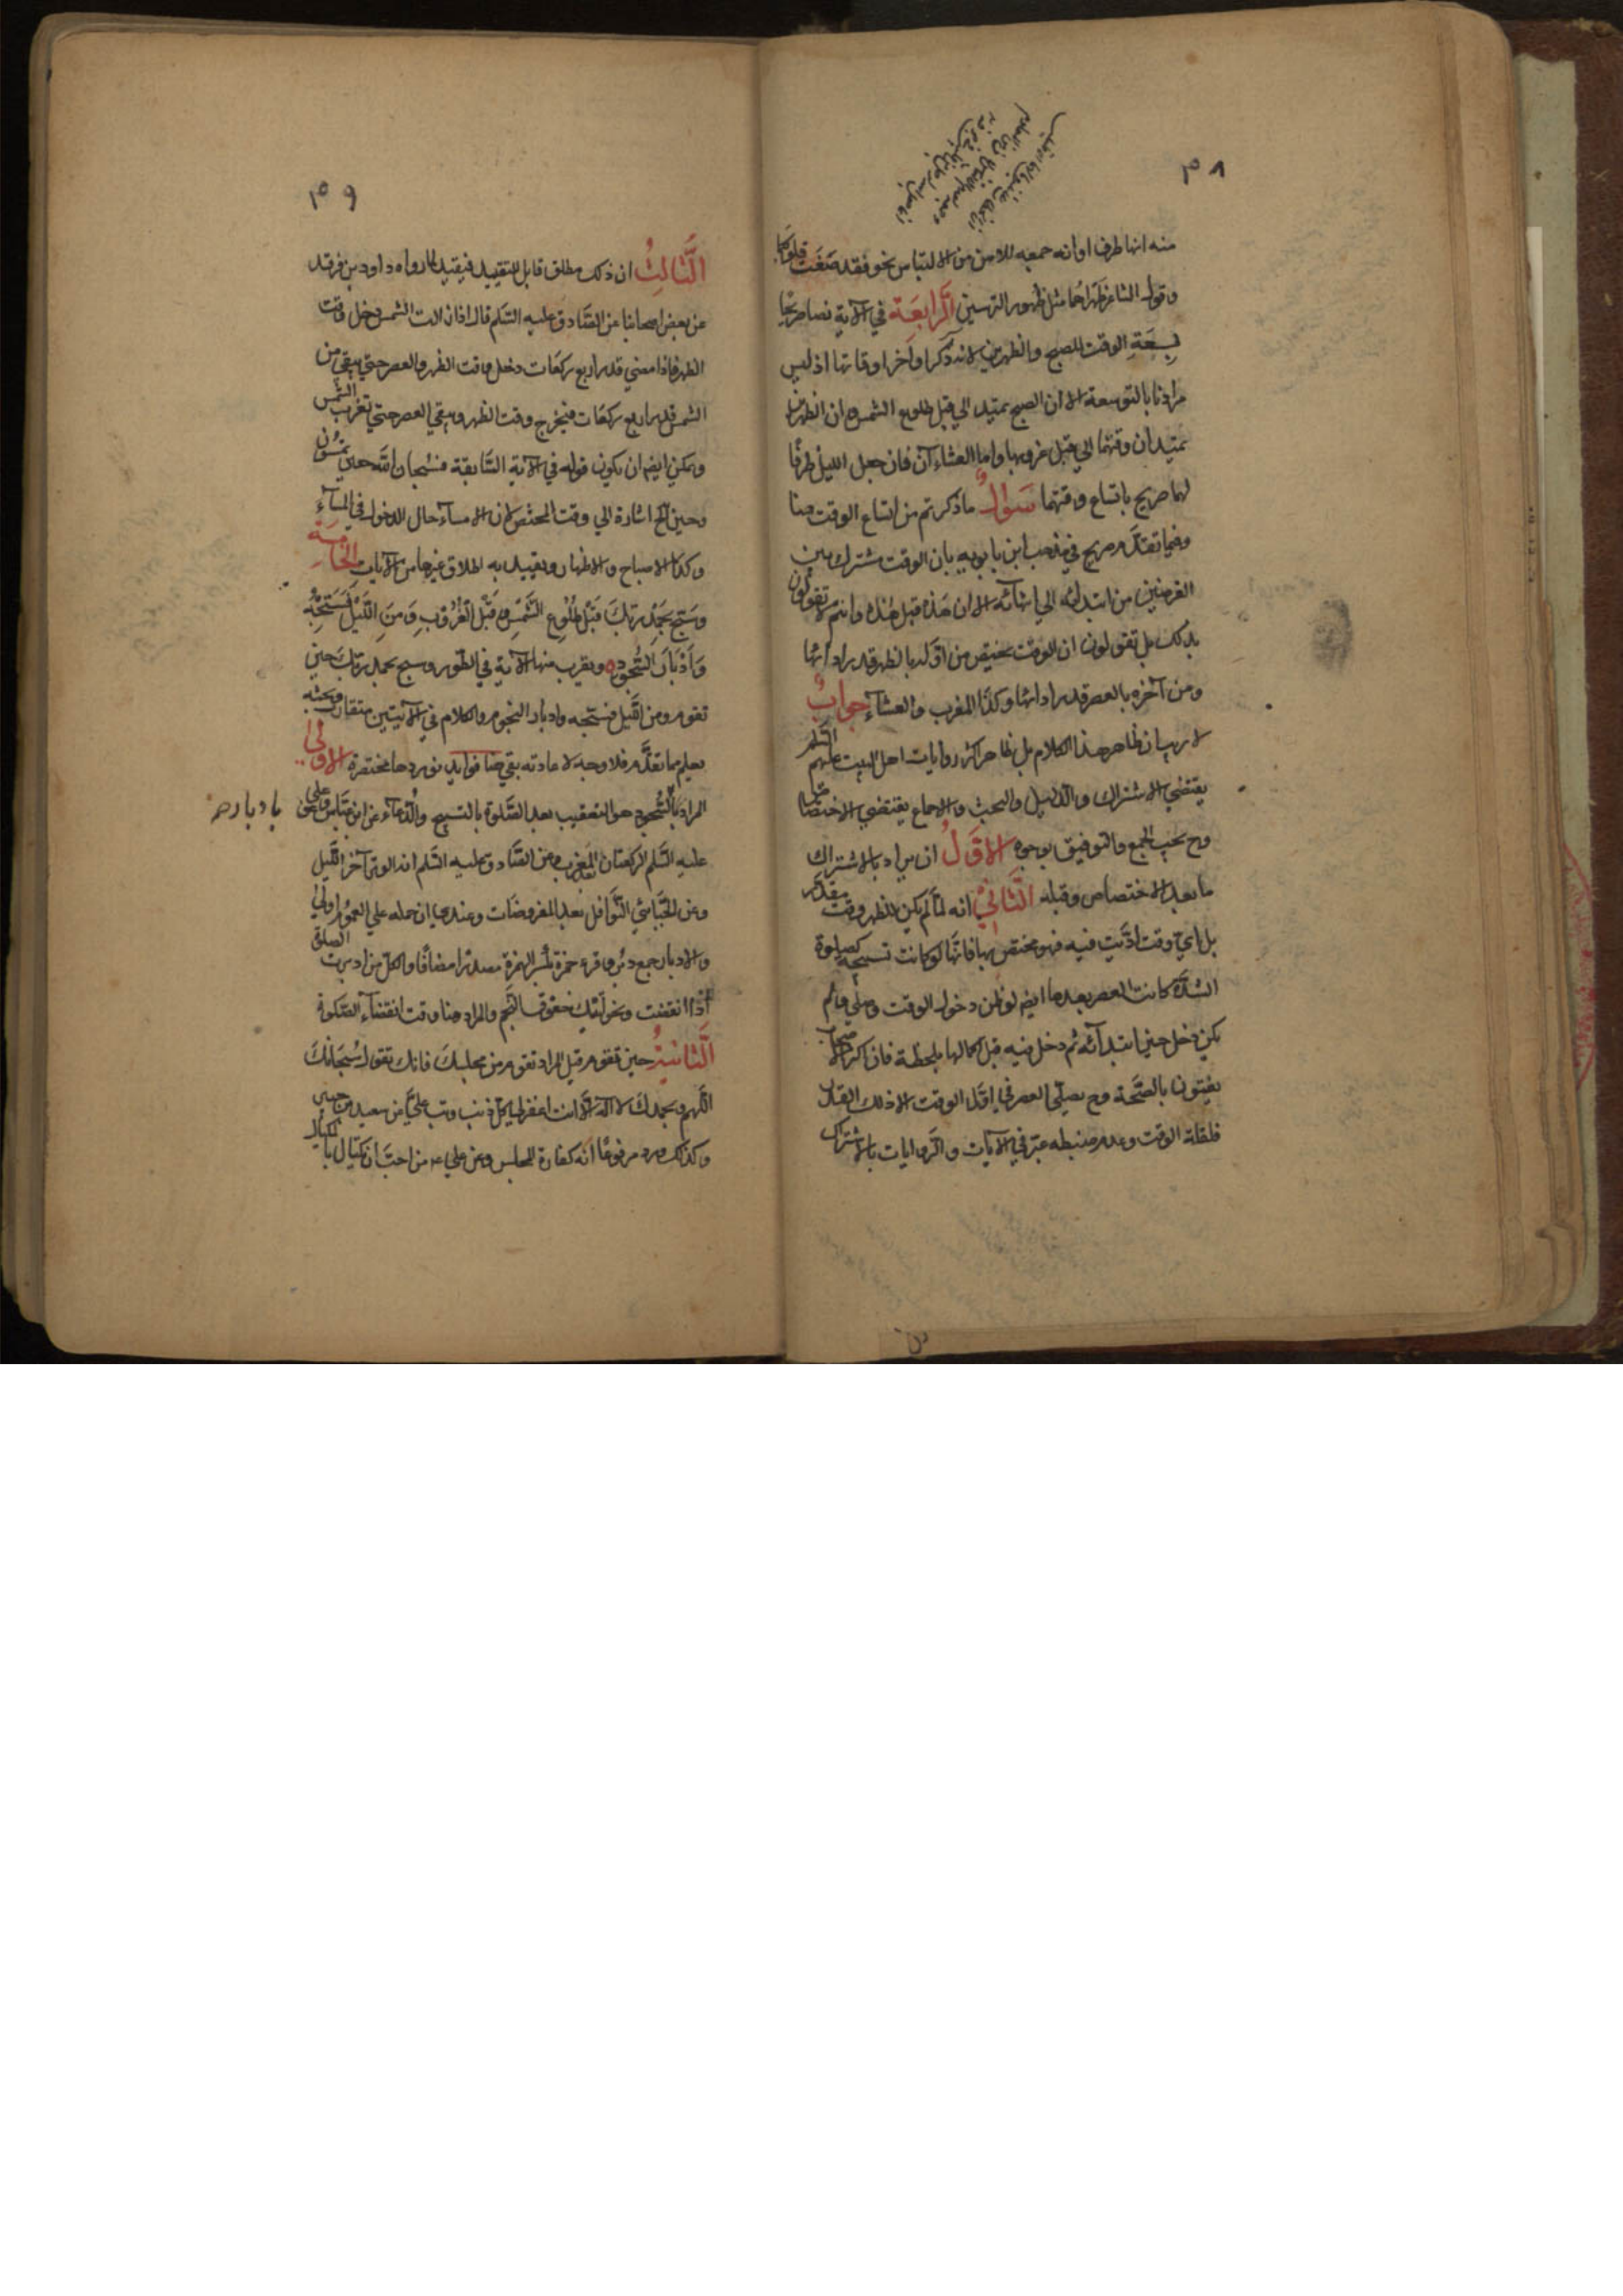 ٣٨
منه انها طرف او انه جمعه للامن من الالتباس نحو فقد صَغَت قلوبكما
وقول الشاعر ظهراهُما مثل ظهور الترسين الرابعَة في الآية نصا صريحا
بِسِعَةِ الوقت للصبح والظهرين لانه ذكر اواخر اوقاتها اذ ليس
مرادنا بالتوسعة الا ان الصبح يمتد الي قبل طلوع الشمس وان الظهرين
يمتدان وقتهما الي قبل غروبها واما العشاآن فان جعل الليل ظرفا
لهما صريح باتساع وقتهما سَوال ما ذكرتم من اتساع الوقت هنا
وفيما تقدّم صريح في مذهب ابن بابويه بان الوقت مشترك بين
الفرضين من ابتدائه الي انتهائه الا ان هذه قبل هذه وانتم لا تقولون
بذلك بل تقولون ان الوقت يختص من اوّله بالظهر قدر ادائها
ومن آخره بالعصر قدر ادائها وكذا المغرب والعشاء جوابٌ
لا ريب ان ظاهر هذا الكلام بل ظاهر اكثر روايات اهل البيت عليهم السّلم
يقتضي الاشتراك والدّليل والبحث والاجماع يقتضي الاختصاص
وح يجب الجمع والتوفيق بوجوه الاوّلُ ان يراد بالاشتراك
ما بعد الاختصاص وقبله الثّانيْ انه لمّا لم يكن للظهر وقت مقدّر
بل ايّ وقت ادّيت فيه فهو مختص بها فانّها لو كانت تسبيحه كصلوة
الشدّة كانت العصر بعدها ايضا لو ظن دخول الوقت وصلّي ولم
يكن دخل حين ابتدائه ثم دخل فيه قبل اكمالها بلحظة فان اكثر الاصحاب
يفتون بالصّحة وح يصلّي العصر في اوّل الوقت الا ذلك القدر
فلقلة الوقت وعدم ضبطه عبّر في الآيات والرّوايات بالاشتراك
٣٩
الثّالثُ ان ذلك مطلق قابل للتقييد فيقيد بما رواه داود بن فرقد
عن بعض اصحابنا عن الصّادق عليه السّلم قال اذا زالت الشمس دخل وقت
الظهر فاذا مضي قدر اربع ركعات دخل وقت الظهر والعصر حتي يبقي من
الشمس قدر اربع ركعات فيخرج وقت الظهر ويبقي العصر حتي تغرب الشّمس
ويمكن ايضا ان يكون قوله في الآية السّابقة فسُبحان اللّه حين تمسُون
وحين الخ اشارة الي وقت المختص لان الامساء حال الدخول في المساء
وكذا الاصباح والاظهار ويقيد به اطلاق غيرها من الآيات الخامِسَة
وَسَبِّح بِحَمْدِ رَبِّكَ قَبْلَ طُلُوعِ الشَّمْسِ وَقَبْلَ الْغُرُوبِ وَمِنَ اللَّيْلِ فَسَبِّحْهُ
وَأَدْبَارَ السُّجُودِ ويقرب منها الآية في الطّور وسبح بحمد ربّك حين
تقوم ومن اللّيل فسبّحه وادبار النجوم والكلام في الآيتين متقارب وبحثه
يعلم مما تقدّم فلا وجه لاعادته بقي هنا فوايد نوردها مختصرة الاولي
المراد بالسّجود هو التعقيب بعد الصّلوة بالتسبيح والدّعاء عن ابن عبّاس وعن علي
بادبار صح
عليه السّلم الركعتان بعد المغرب وعن الصّادق عليه السّلم انه الوتر آخر اللّيل
وعن الجبّائي النّوافل بعد المفروضات وعندي ان حمله علي العموم اولي
والادبار جمع دبُر وقرء حمزة بكسر الهمزة مصدرا مضافا والكل من ادبرت الصلوة
اذا انقضت ونحو اتيتك خفوق النّجم والمراد هنا وقت انقضاء الصّلوة
الثّانيةُ حين تقوم قيل المراد تقوم من مجلسك فانك تقول سُبحَانَكَ
اللّهم وبحمدك لا اله الّا انت اغفر لي كلّ ذنب وتب علي عن سعيد بن جبير
وكذلك ورد مرفوعًا انّه كفارة للمجلس وعن علي ع من احبّ ان يكتال بالمكيال